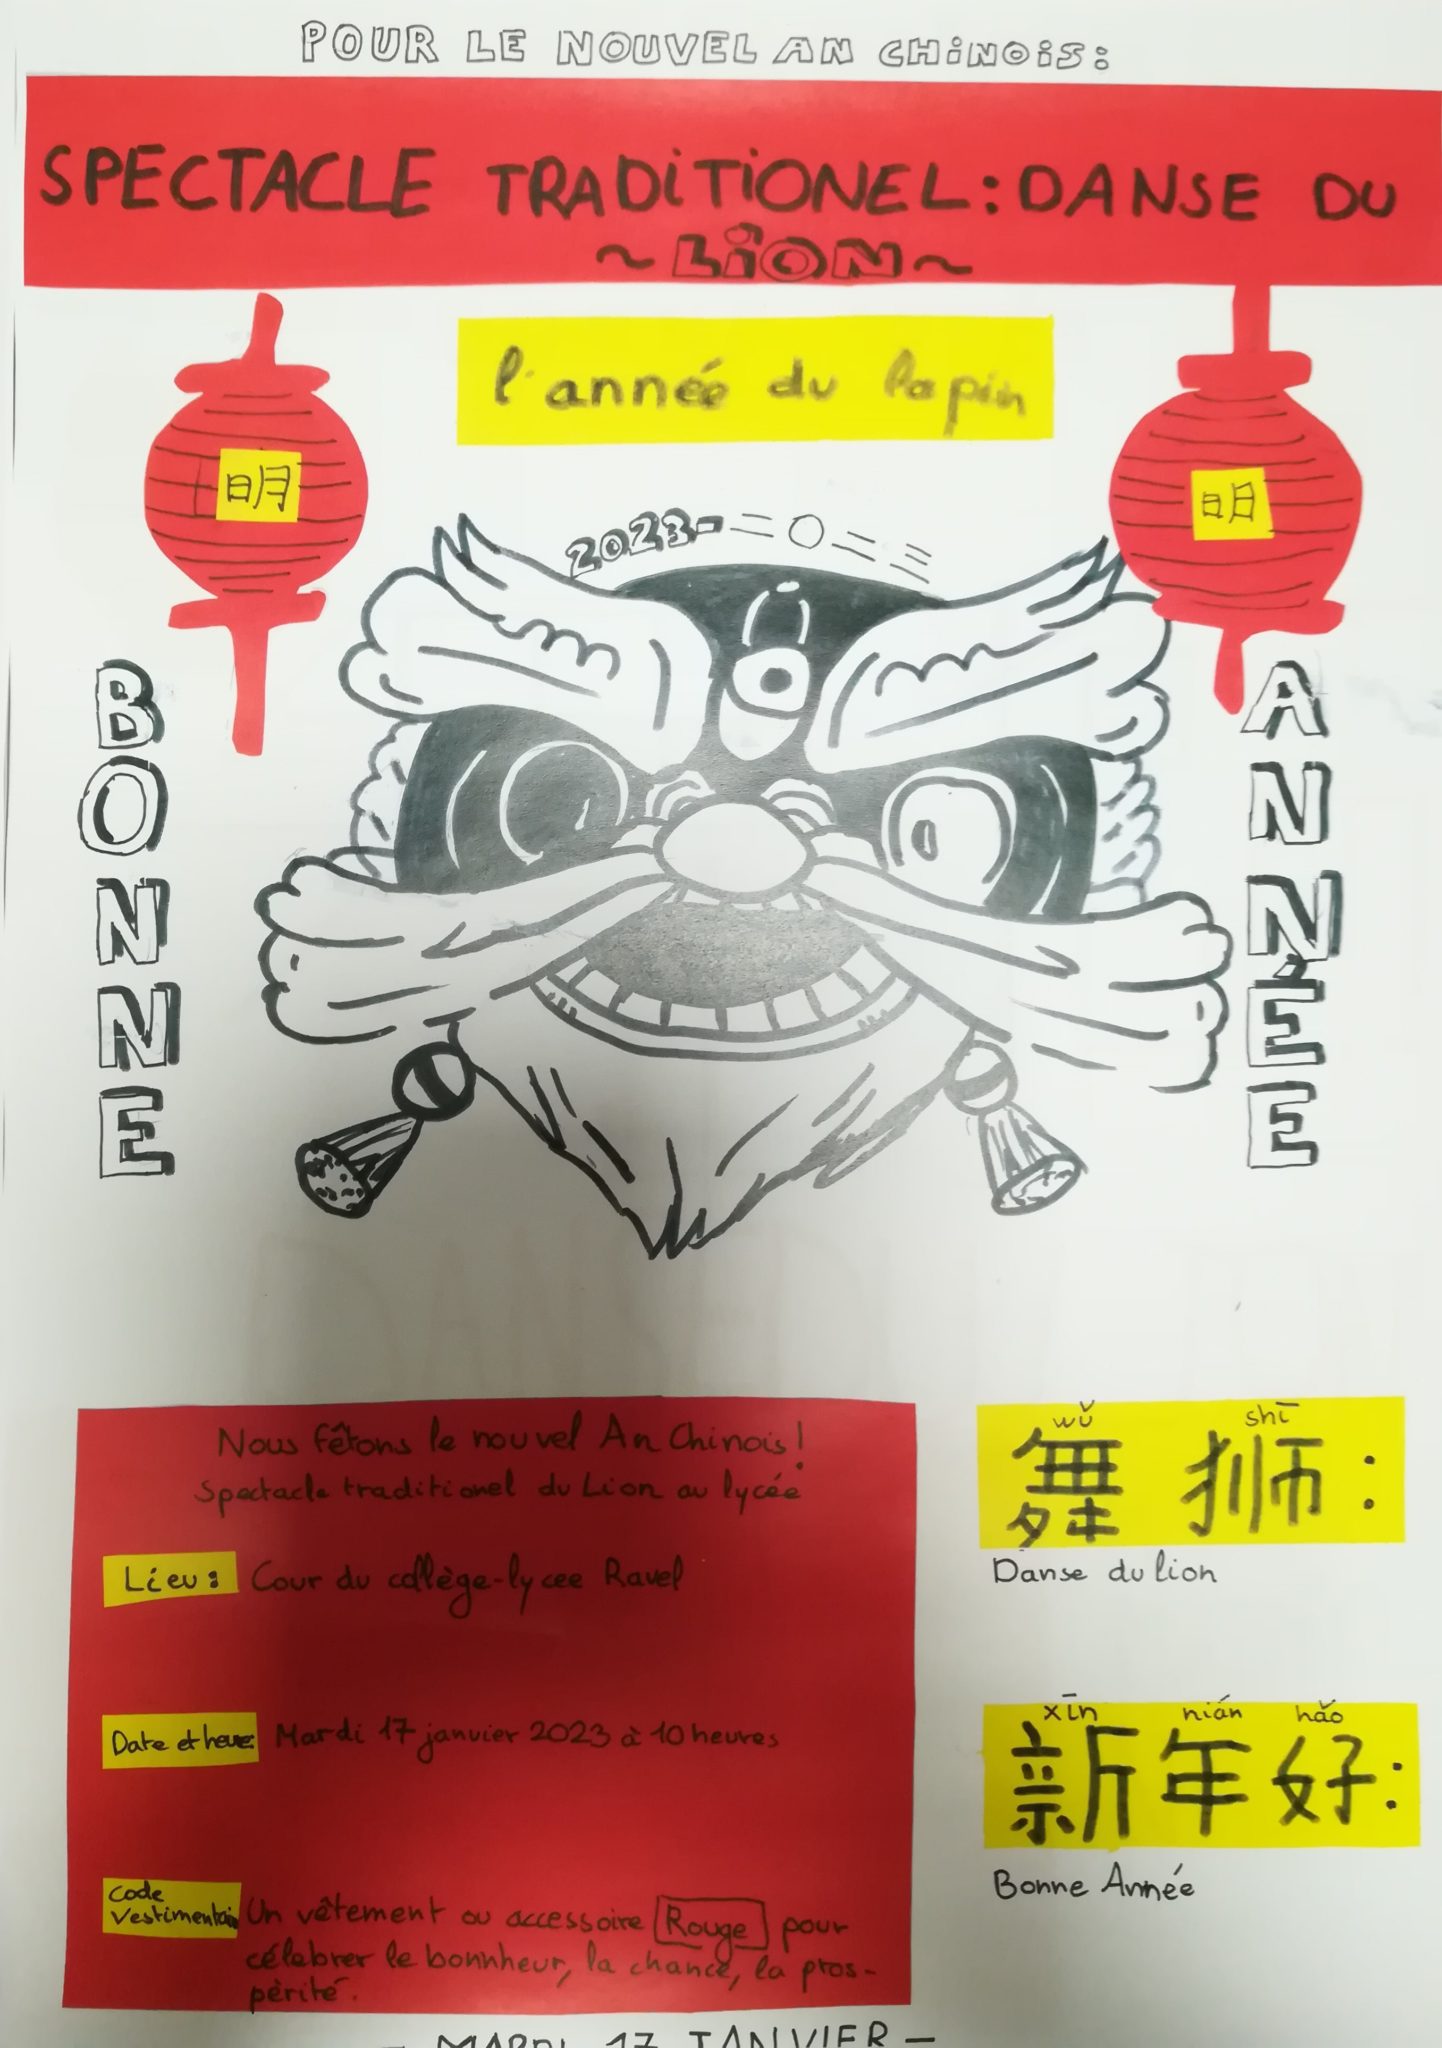 POUR LE NOUVEL AN CHINOIS:
SPECTACLE TRADITIONEL: DANSE DU
~LION~
l'année du lapin
明
明
2023-二〇二三
BONNE
ANNÉE
Nous fêtons le nouvel An Chinois!
Spectacle traditionel du Lion au lycée
Lieu: Cour du collège-lycee Ravel
Date et heure: Mardi 17 janvier 2023 à 10 heures
Code
Vestimentair Un vêtement ou accessoire Rouge pour
célébrer le bonnheur, la chance, la pros-
périté.
wǔ shī
舞狮:
Danse du lion
xīn nián hǎo
新年好:
Bonne Année
- MARDI 17 JANVIER -